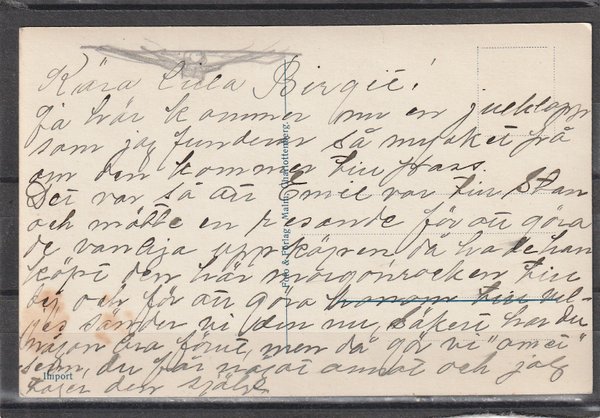 Kära lilla Birgit!
Ja här kommer nu en julklapp
som jag funderar så mycket på
om den kommer till pass.
Det var så att Emil var till Stan
och mötte en resande för att göra
de vanliga uppköpen då hade han
köpt den här morgonrocken till
dig och för att göra honom till vil-
jes sänder vi den nu, säkert har du
någon bra förut, men då gör vi "omet"
du får något annat och jag
tager den själv.
Foto & Förlag, Malm, Charlottenberg.
Import